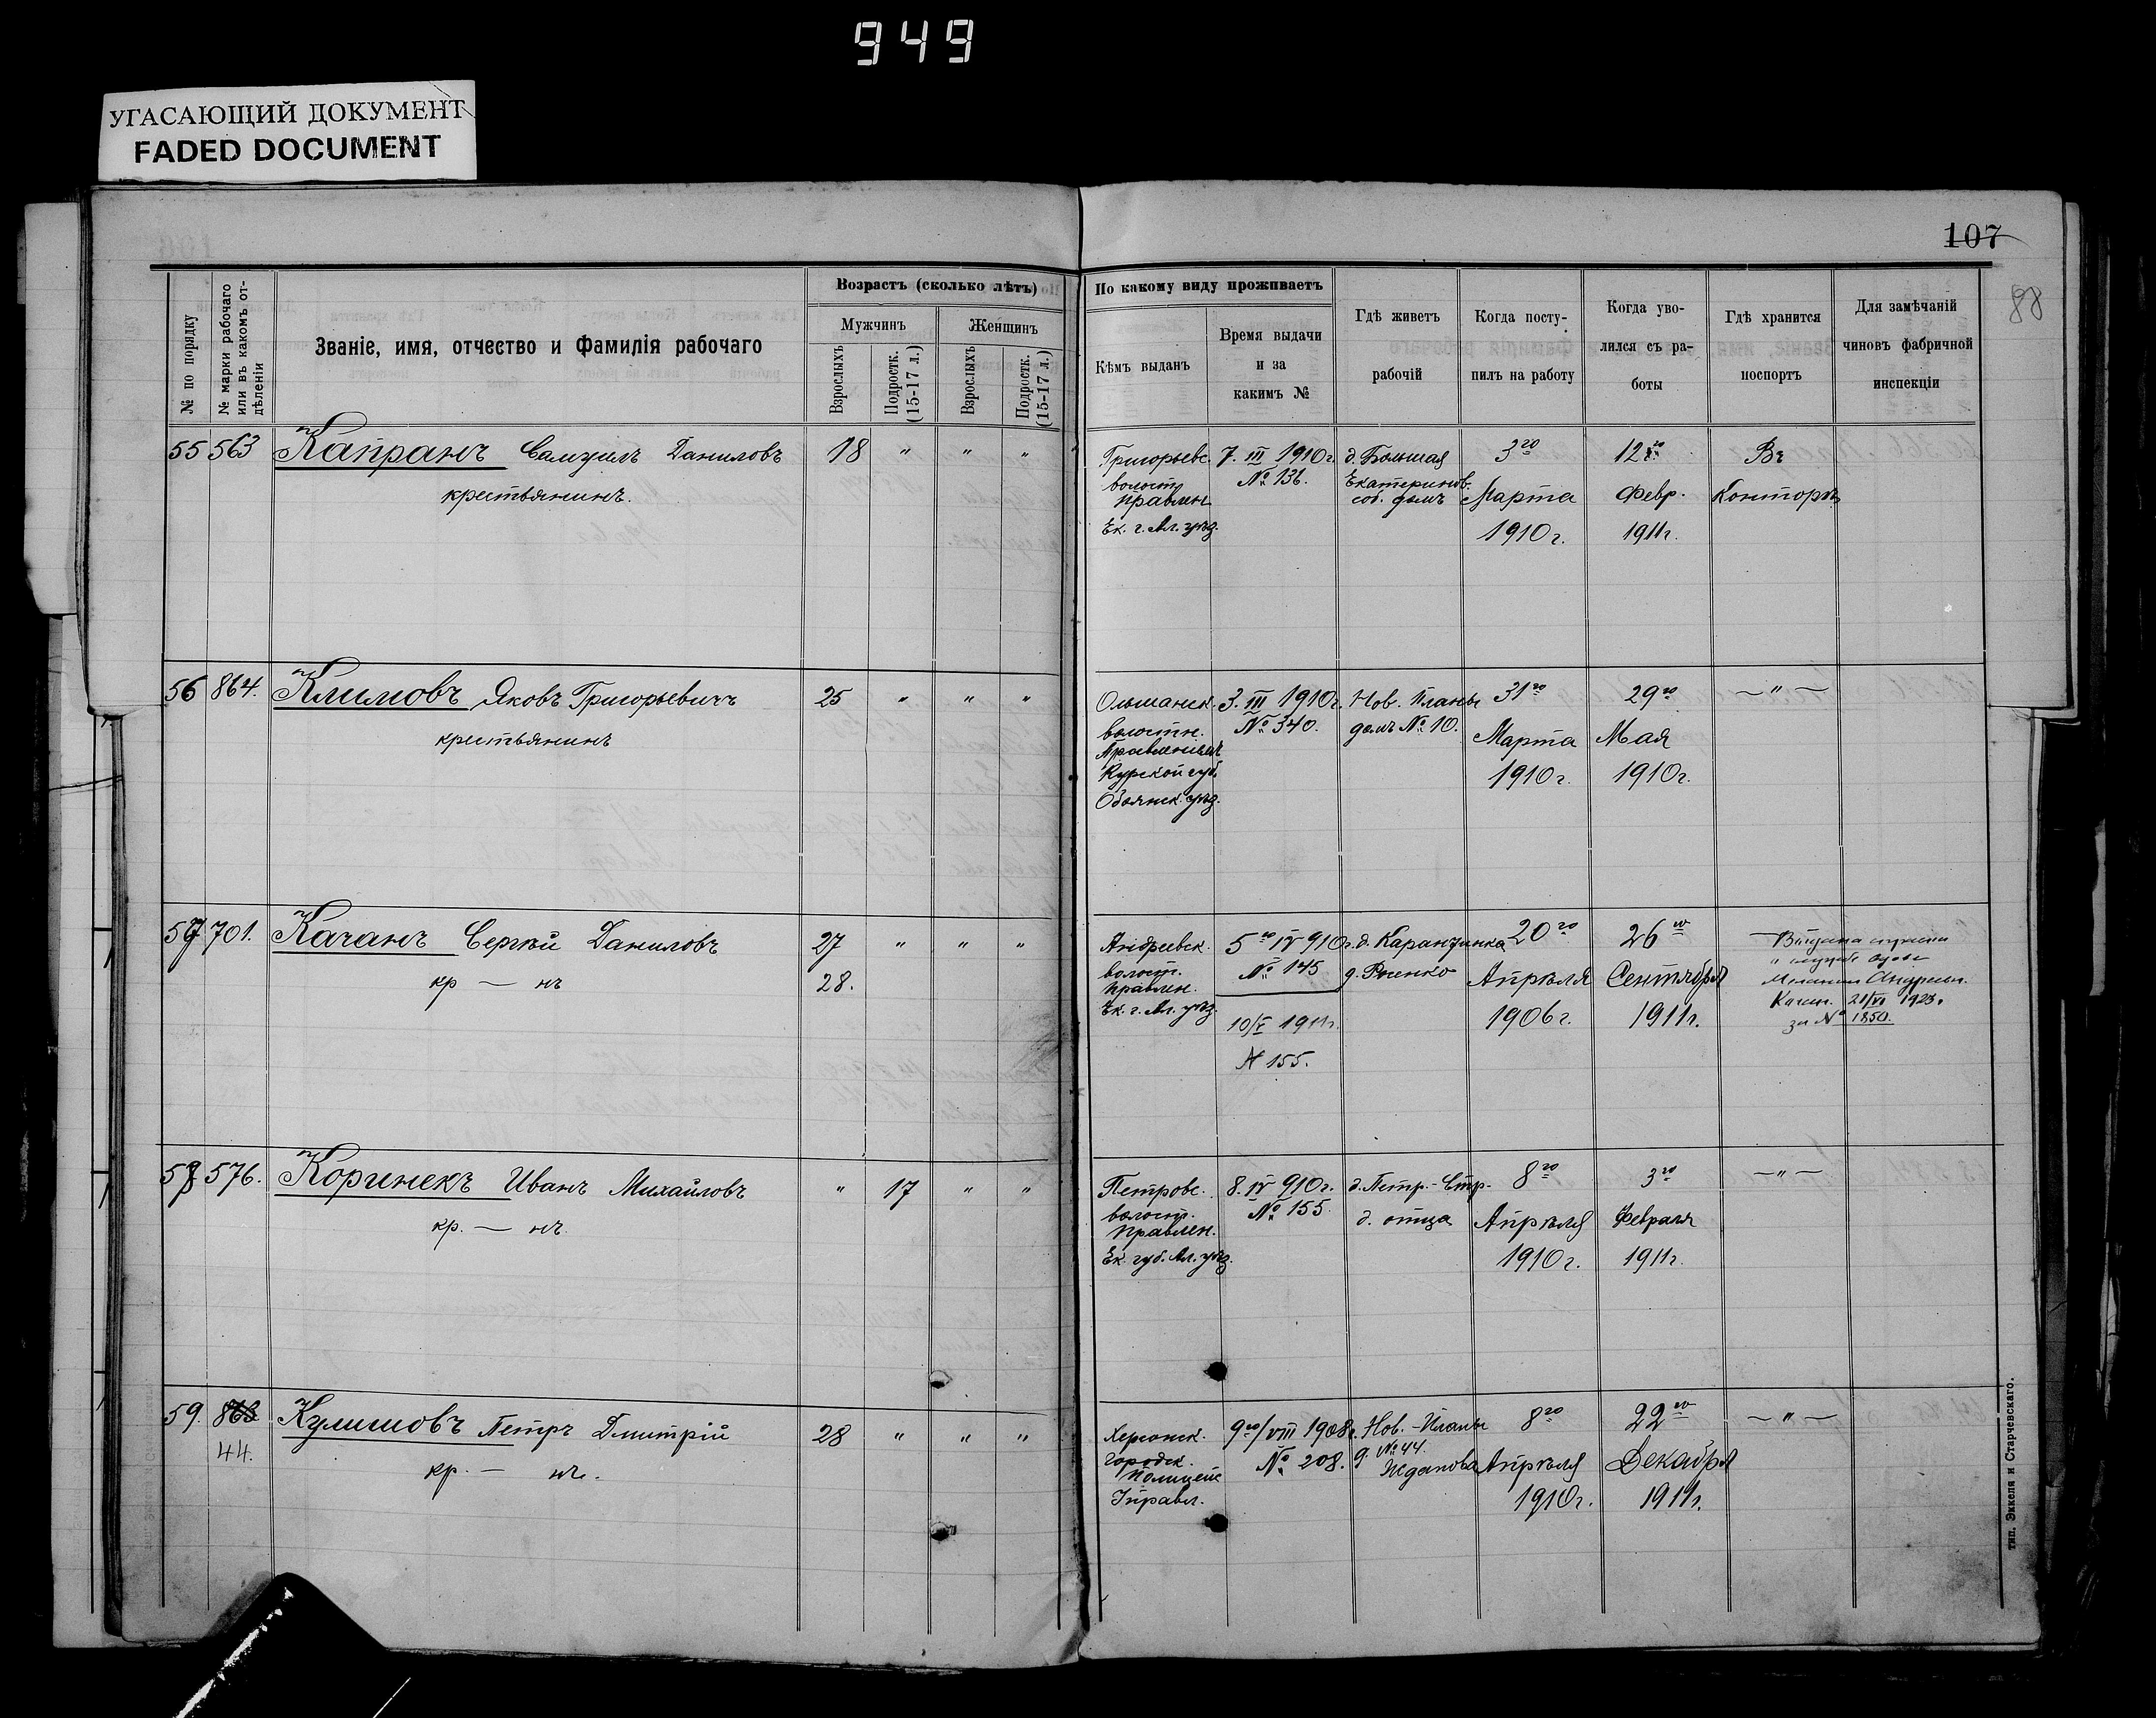 949
УГАСАЮЩИЙ ДОКУМЕНТ
FADED DOCUMENT
107
88
№ по порядку
№ марки рабочаго или въ какомъ отдѣленіи
Званіе, имя, отчество и фамилія рабочаго
Возрастъ (сколько лѣтъ)
Мужчинъ
Женщинъ
Взрослыхъ
Подростк. (15-17 л.)
Взрослыхъ
Подростк. (15-17 л.)
По какому виду проживаетъ
Кѣмъ выданъ
Время выдачи и за какимъ №
Гдѣ живетъ рабочій
Когда поступилъ на работу
Когда уволился съ работы
Гдѣ хранится поспортъ
Для замѣчаній чиновъ фабричной инспекціи
55 563 Капранъ Самуилъ Даниловъ 18 " " "
крестьянинъ.
Григорьевс. волостн. правлен. Ек. г. Ал. уѣзд.
7. III 1910 г. № 136.
д. Большая Екатеринов. соб. домъ
3го Марта 1910 г.
12го Февр. 1911 г.
Въ Конторѣ
56 864. Климовъ Яковъ Григорьевичъ 25 " " "
крестьянинъ
Ольшанск. волостн. Правленіемъ Курской губ. Обоянск. уѣзд.
3. III 1910 г. № 340.
Нов. Планы домъ № 10.
31го Марта 1910 г.
29го Мая 1910 г.
— " —
57 701. Качанъ Сергѣй Даниловъ 27 " " "
кр — нъ 28.
Андреевск. волост. правлен. Ек. г. Ал. уѣзд.
5го IV 910 г. № 145
10/V 1911 г. № 155.
д. Карантинка д.
20го Апрѣля 1906 г.
26го Сентября 1911 г.
Выдана
Качан. 21/VI 1923.
за № 1850.
58 576. Коринекъ Иванъ Михайловъ " 17 " "
кр. — нъ.
Петровс. волост. правлен. Ек. губ. Ал. уѣзд.
8. IV 910 г. № 155.
д. Петр.-Стр. д. отца
8го Апрѣля 1910 г.
3го Февраля 1911 г.
— " —
59. 863 Кулишовъ Петръ Дмитрій 28 " " "
44. кр. — нъ.
Херсонск. Городск. Полицейс Управл.
9го/VIII 1908 г. № 208.
Нов.-Планы № 44. д. Жданова
8го Апрѣля 1910 г.
22го Декабря 1911 г.
— " —
тип. Эккеля и Старчевскаго.